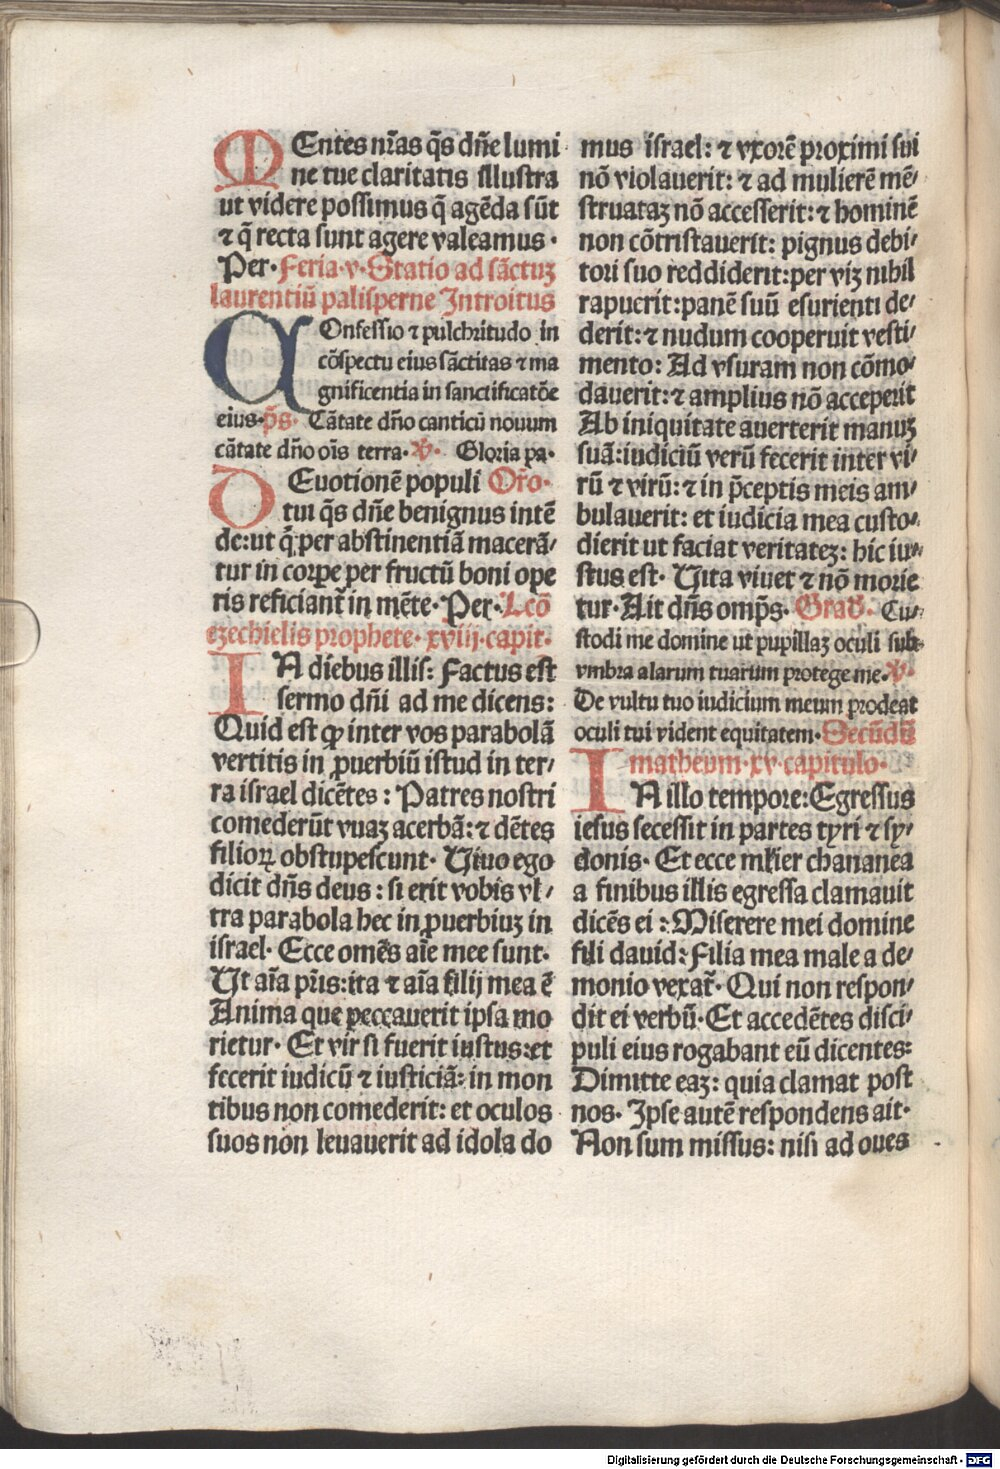 MEntes nr̃as q̃s dñe lumi
ne tue claritatis illustra
ut videre possimus q̃ agẽda sũt
⁊ q̃ recta sunt agere valeamus ·
Per· Feria·v·Statio ad sãctuꝫ
laurentiũ palisperne Introitus
COnfessio ⁊ pulchritudo in
cõspectu eius sãctitas ⁊ ma
gnificentia in sanctificatõe
eius·p̃s· Cãtate dño canticũ novum
cãtate dño oĩs terra·V̾· Gloria pa·
DEuotionẽ populi Or̃o·
tui q̃s dñe benignus intẽ
de:ut q̃ per abstinentiã macerã/
tur in corpe per fructũ boni ope
ris reficiant̃ in mẽte· Per· Lcõ
ezechielis prophete· xviij·capit·
IN diebus illis: Factus est
sermo dñi ad me dicens:
Quid est ꝙ inter vos parabolã
vertitis in ꝓuerbiũ istud in ter/
ra israel dicẽtes : Patres nostri
comederũt vuaꝫ acerbã: ⁊ dẽtes
filioꝝ obstupescunt· Viuo ego
dicit dñs deus : si erit vobis vl/
tra parabola hec in ꝓuerbiuꝫ in
israel· Ecce omẽs aĩe mee sunt·
Ut aĩa pr̃is:ita ⁊ aĩa filij mea ẽ
Anima que peccauerit ipsa mo
rietur· Et vir si fuerit iustus:et
fecerit iudicũ ⁊ iusticiã: in mon
tibus non comederit: et oculos
suos non leuauerit ad idola do
mus israel: ⁊ vxorẽ proximi sui
nõ violauerit: ⁊ ad mulierẽ mẽ/
struataꝫ nõ accesserit: ⁊ hominẽ
non cõtristauerit: pignus debi/
tori suo reddiderit:per viꝫ nihil
rapuerit:panẽ suũ esurienti de/
derit: ⁊ nudum cooperuit vesti/
mento: Ad vsuram non cõmo/
dauerit: ⁊ amplius nõ acceperit
Ab iniquitate auerterit manuꝫ
suã:iudiciũ verũ fecerit inter vi/
rũ ⁊ virũ: ⁊ in p̃ceptis meis am/
bulauerit: et iudicia mea custo/
dierit ut faciat veritateꝫ: hic iu/
stus est· Uita viuet ⁊ nõ morie
tur· Ait dñs omp̃s· Grad̾· Cu/
stodi me domine ut pupillaꝫ oculi sub
vmbra alarum tuarum protege me·V̾·
De vultu tuo iudicium meum prodeat
oculi tui vident equitatem· Secũdũ
matheum·xv·capitulo·
IN illo tempore:Egressus
iesus secessit in partes tyri ⁊ sy/
donis· Et ecce ml̃ier chananea
a finibus illis egressa clamauit
dicẽs ei : Miserere mei domine
fili dauid: Filia mea male a de/
monio vexat̃· Qui non respon/
dit ei verbũ· Et accedẽtes disci/
puli eius rogabant eũ dicentes:
Dimitte eaꝫ: quia clamat post
nos· Ipse autẽ respondens ait·
Non sum missus: nisi ad oues
Digitalisierung gefördert durch die Deutsche Forschungsgemeinschaft - DFG